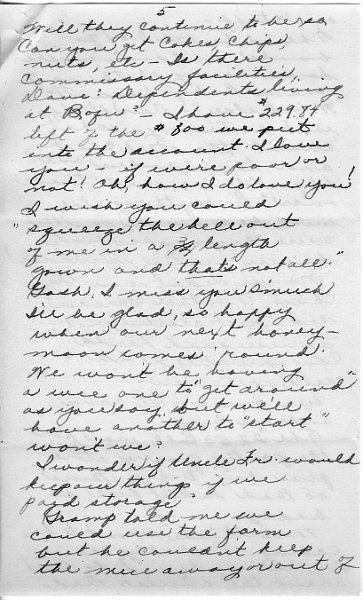 5
Will they continue to be so
Can you get Cokes, Chips,
nuts, etc - Is there
commissary facilities,
Dave? Dependents living
at Bofu? - I have $229.84
left of the $800 we put
into the account. I love
you - if we're poor or
not! Oh, how I do love you!
I wish you could
"squeeze the hell out
of me in a ¾ length
gown and that's not all."
Gosh, I miss you so much
I'll be glad, so happy
when our next honey-
moon comes 'round.
We won't be having
a wee one to "get around"
as you say, but we'll
have another to "start"
won't we?
I wonder if Uncle Fr. would
keep our things if we
paid storage?
Gramp told me we
could use the farm
but he couldn't keep
the mice away or out of